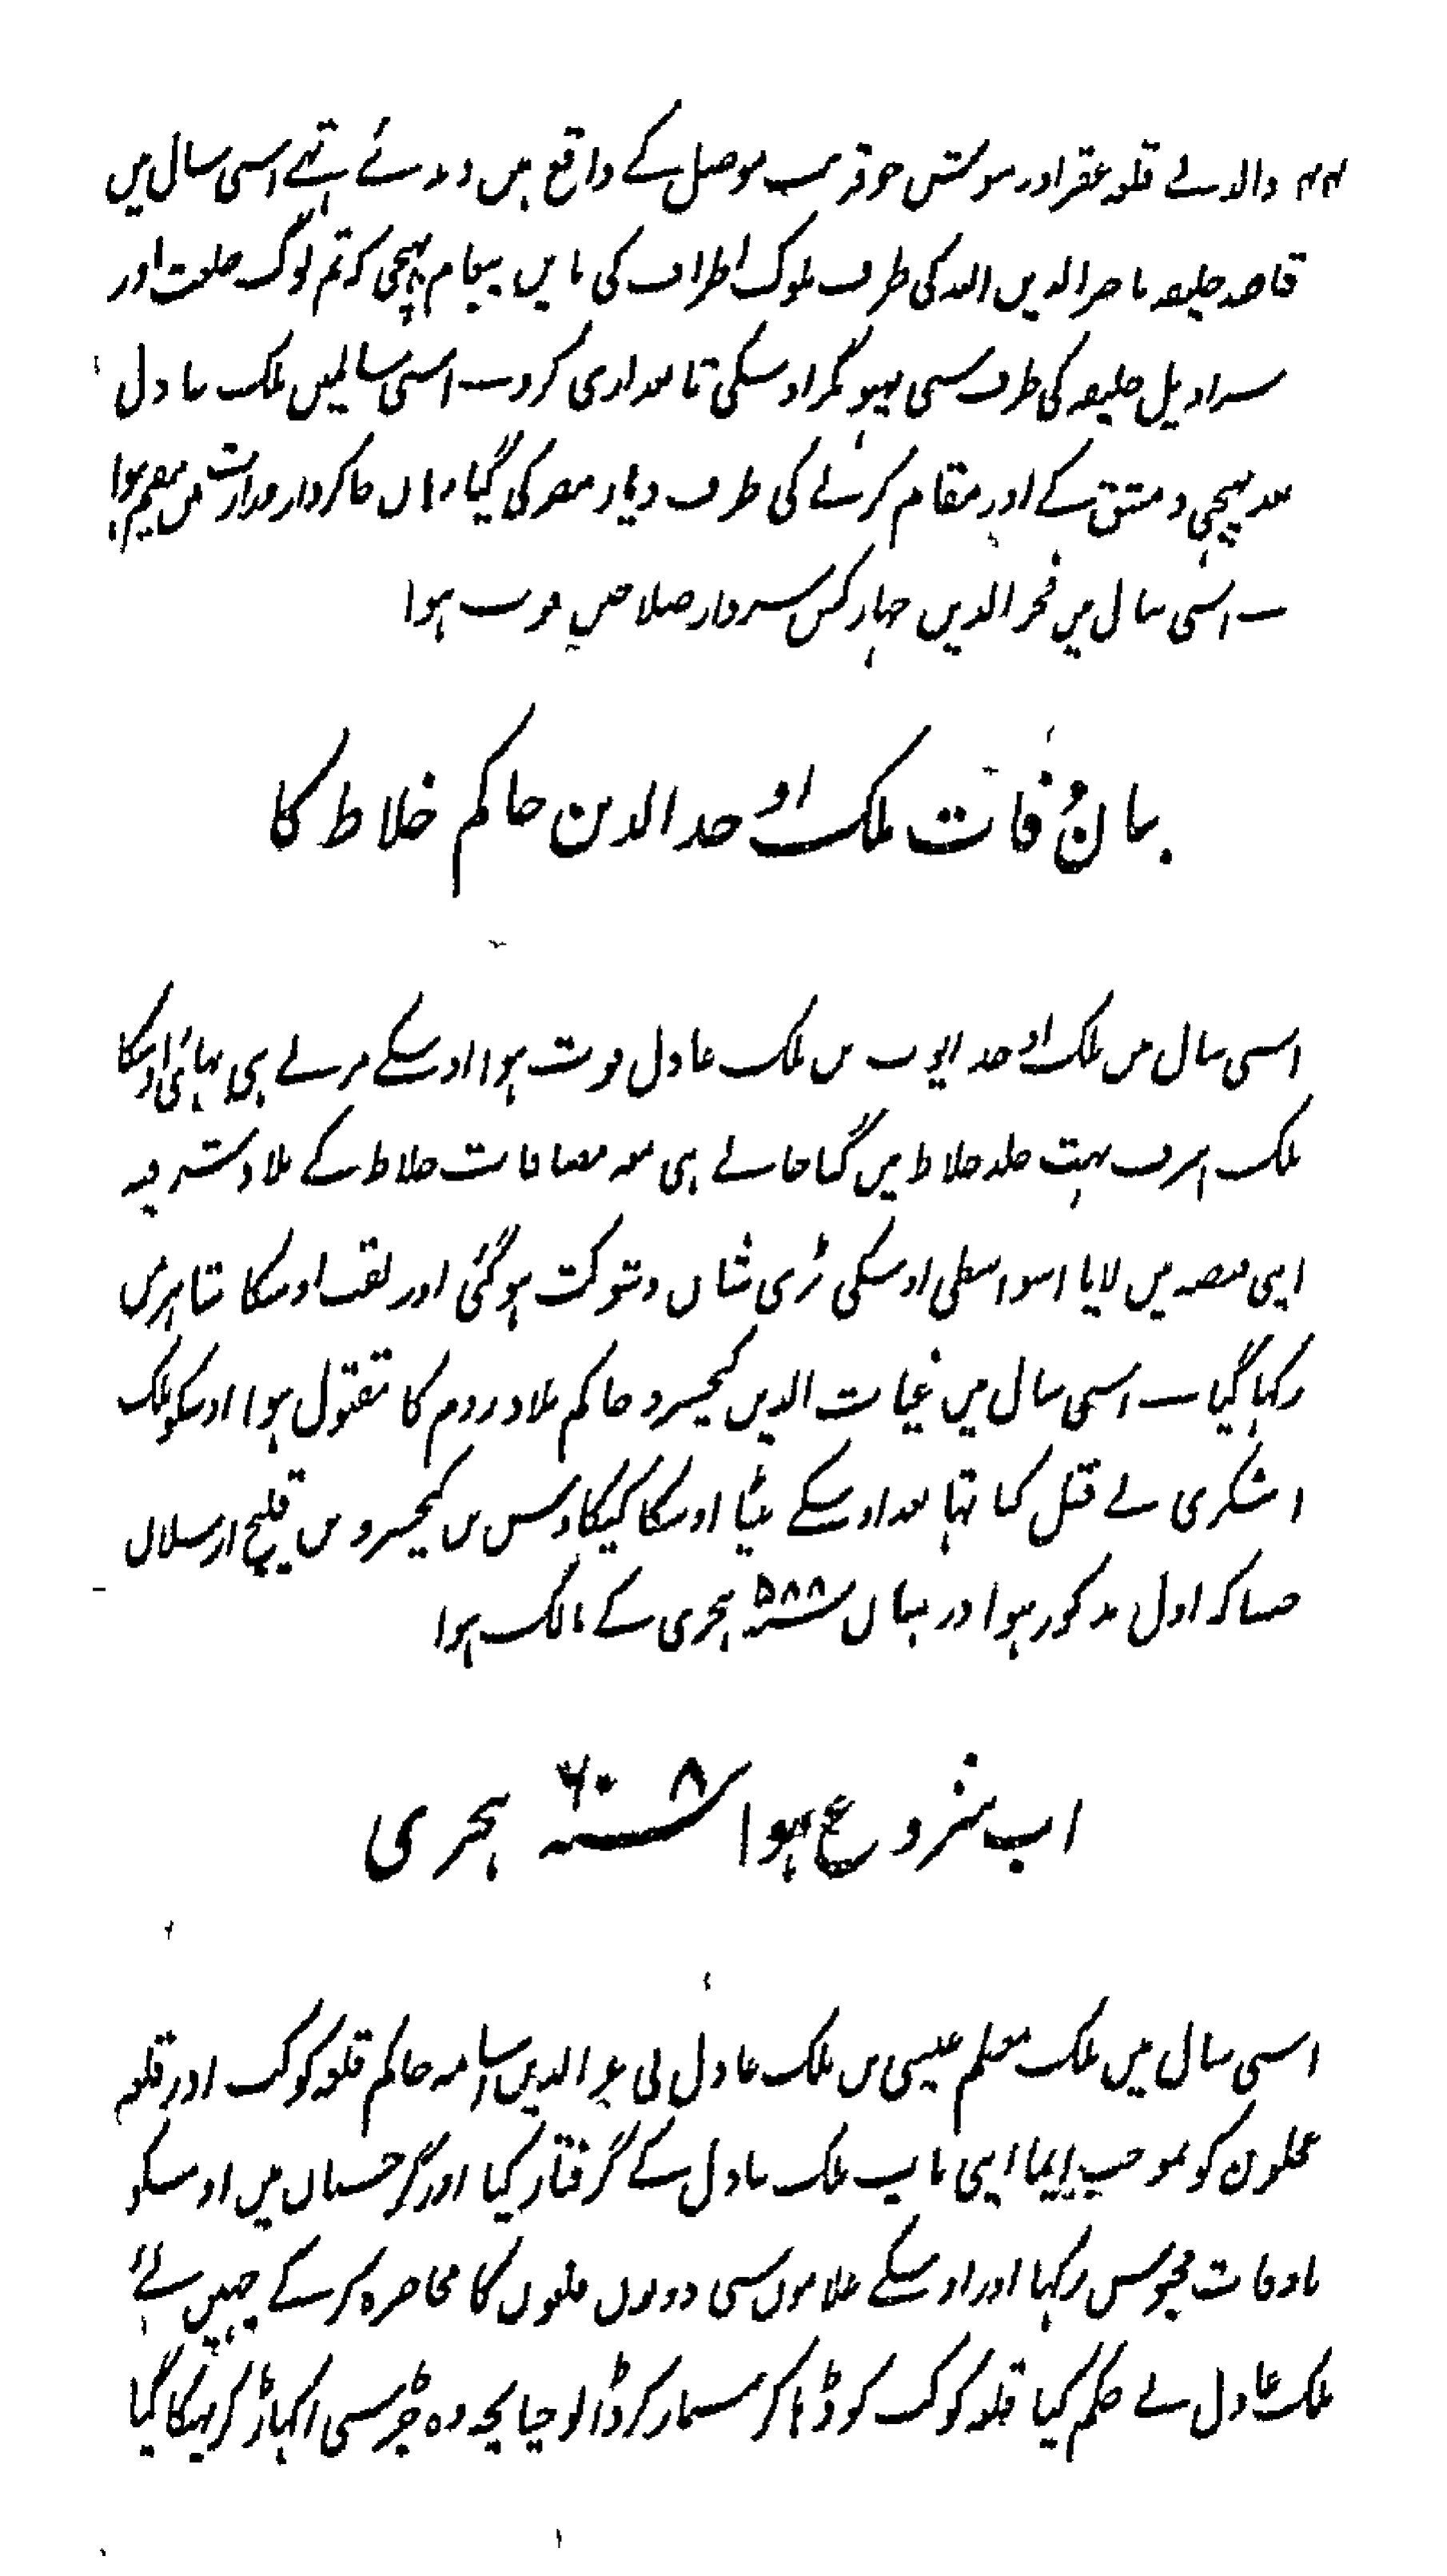 والد نے قلعہ عقر اور سوش جو قریب موصل کے واقع ہیں دیدئے تہے اسی سال میں
قاصد خلیفہ ناصر الدین اللہ کی طرف ملوک اطراف کی بایں پیغام پہنچی کہ تم لوگ خلعت اور
سراویل خلیفہ کی طرف سی پہنو گر اوسکی تابعداری کرو ۔ اسی سالمیں ملک عادل
بعد پہنچنے دمشق کے اور مقام کرنے کی طرف دیار مصر کی گیا وہاں جاکر دار وزارت میں مقیم ہوا
۔ اسی سال میں فخر الدین جہارکس سردار صلاحی فوت ہوا
بیان وفات ملک اوحد الدین حاکم خلاط کا
اسی سال میں ملک اوحد ایوب بن ملک عادل فوت ہوا اوسکے مرتے ہی بہائی اوسکا
ملک اشرف بہت جلد خلاط میں گیا جاتے ہی معہ مضافات خلاط کے بلاد شرقیہ
اپنی قبضہ میں لایا اسواسطی اوسکی بڑی شان و شوکت ہوگئی اور لقب اوسکا شاہرمن
رکہا گیا ۔ اسی سال میں غیاث الدین کیخسرو حاکم بلاد روم کا مقتول ہوا اوسکو ملک
اشکری نے قتل کیا تہا بعد اوسکے بیٹا اوسکا کیکاوس بن کیخسرو بن قلیج ارسلان
جیسا کہ اول مذکور ہوا در بیان سنہ ۵۸۸ ہجری کے مالک ہوا
اب شروع ہوا سنہ ۶۰۸ ہجری
اسی سال میں ملک معظم عیسی بن ملک عادل نی عز الدین اسامہ حاکم قلعہ کوکب اور قلعہ
عجلون کو بموجب ایما اپنی باپ ملک عادل کے گرفتار کیا اور کرک میں اوسکو
تا وفات محبوس رکہا اور اوسکے غلاموں سی دونوں قلعوں کا محاصرہ کرکے چہین لئے
ملک عادل نے حکم کیا قلعہ کوکب کو ڈہا کر مسمار کر ڈالو چنانچہ وہ جڑ سی اکہاڑ کر پہینکا گیا